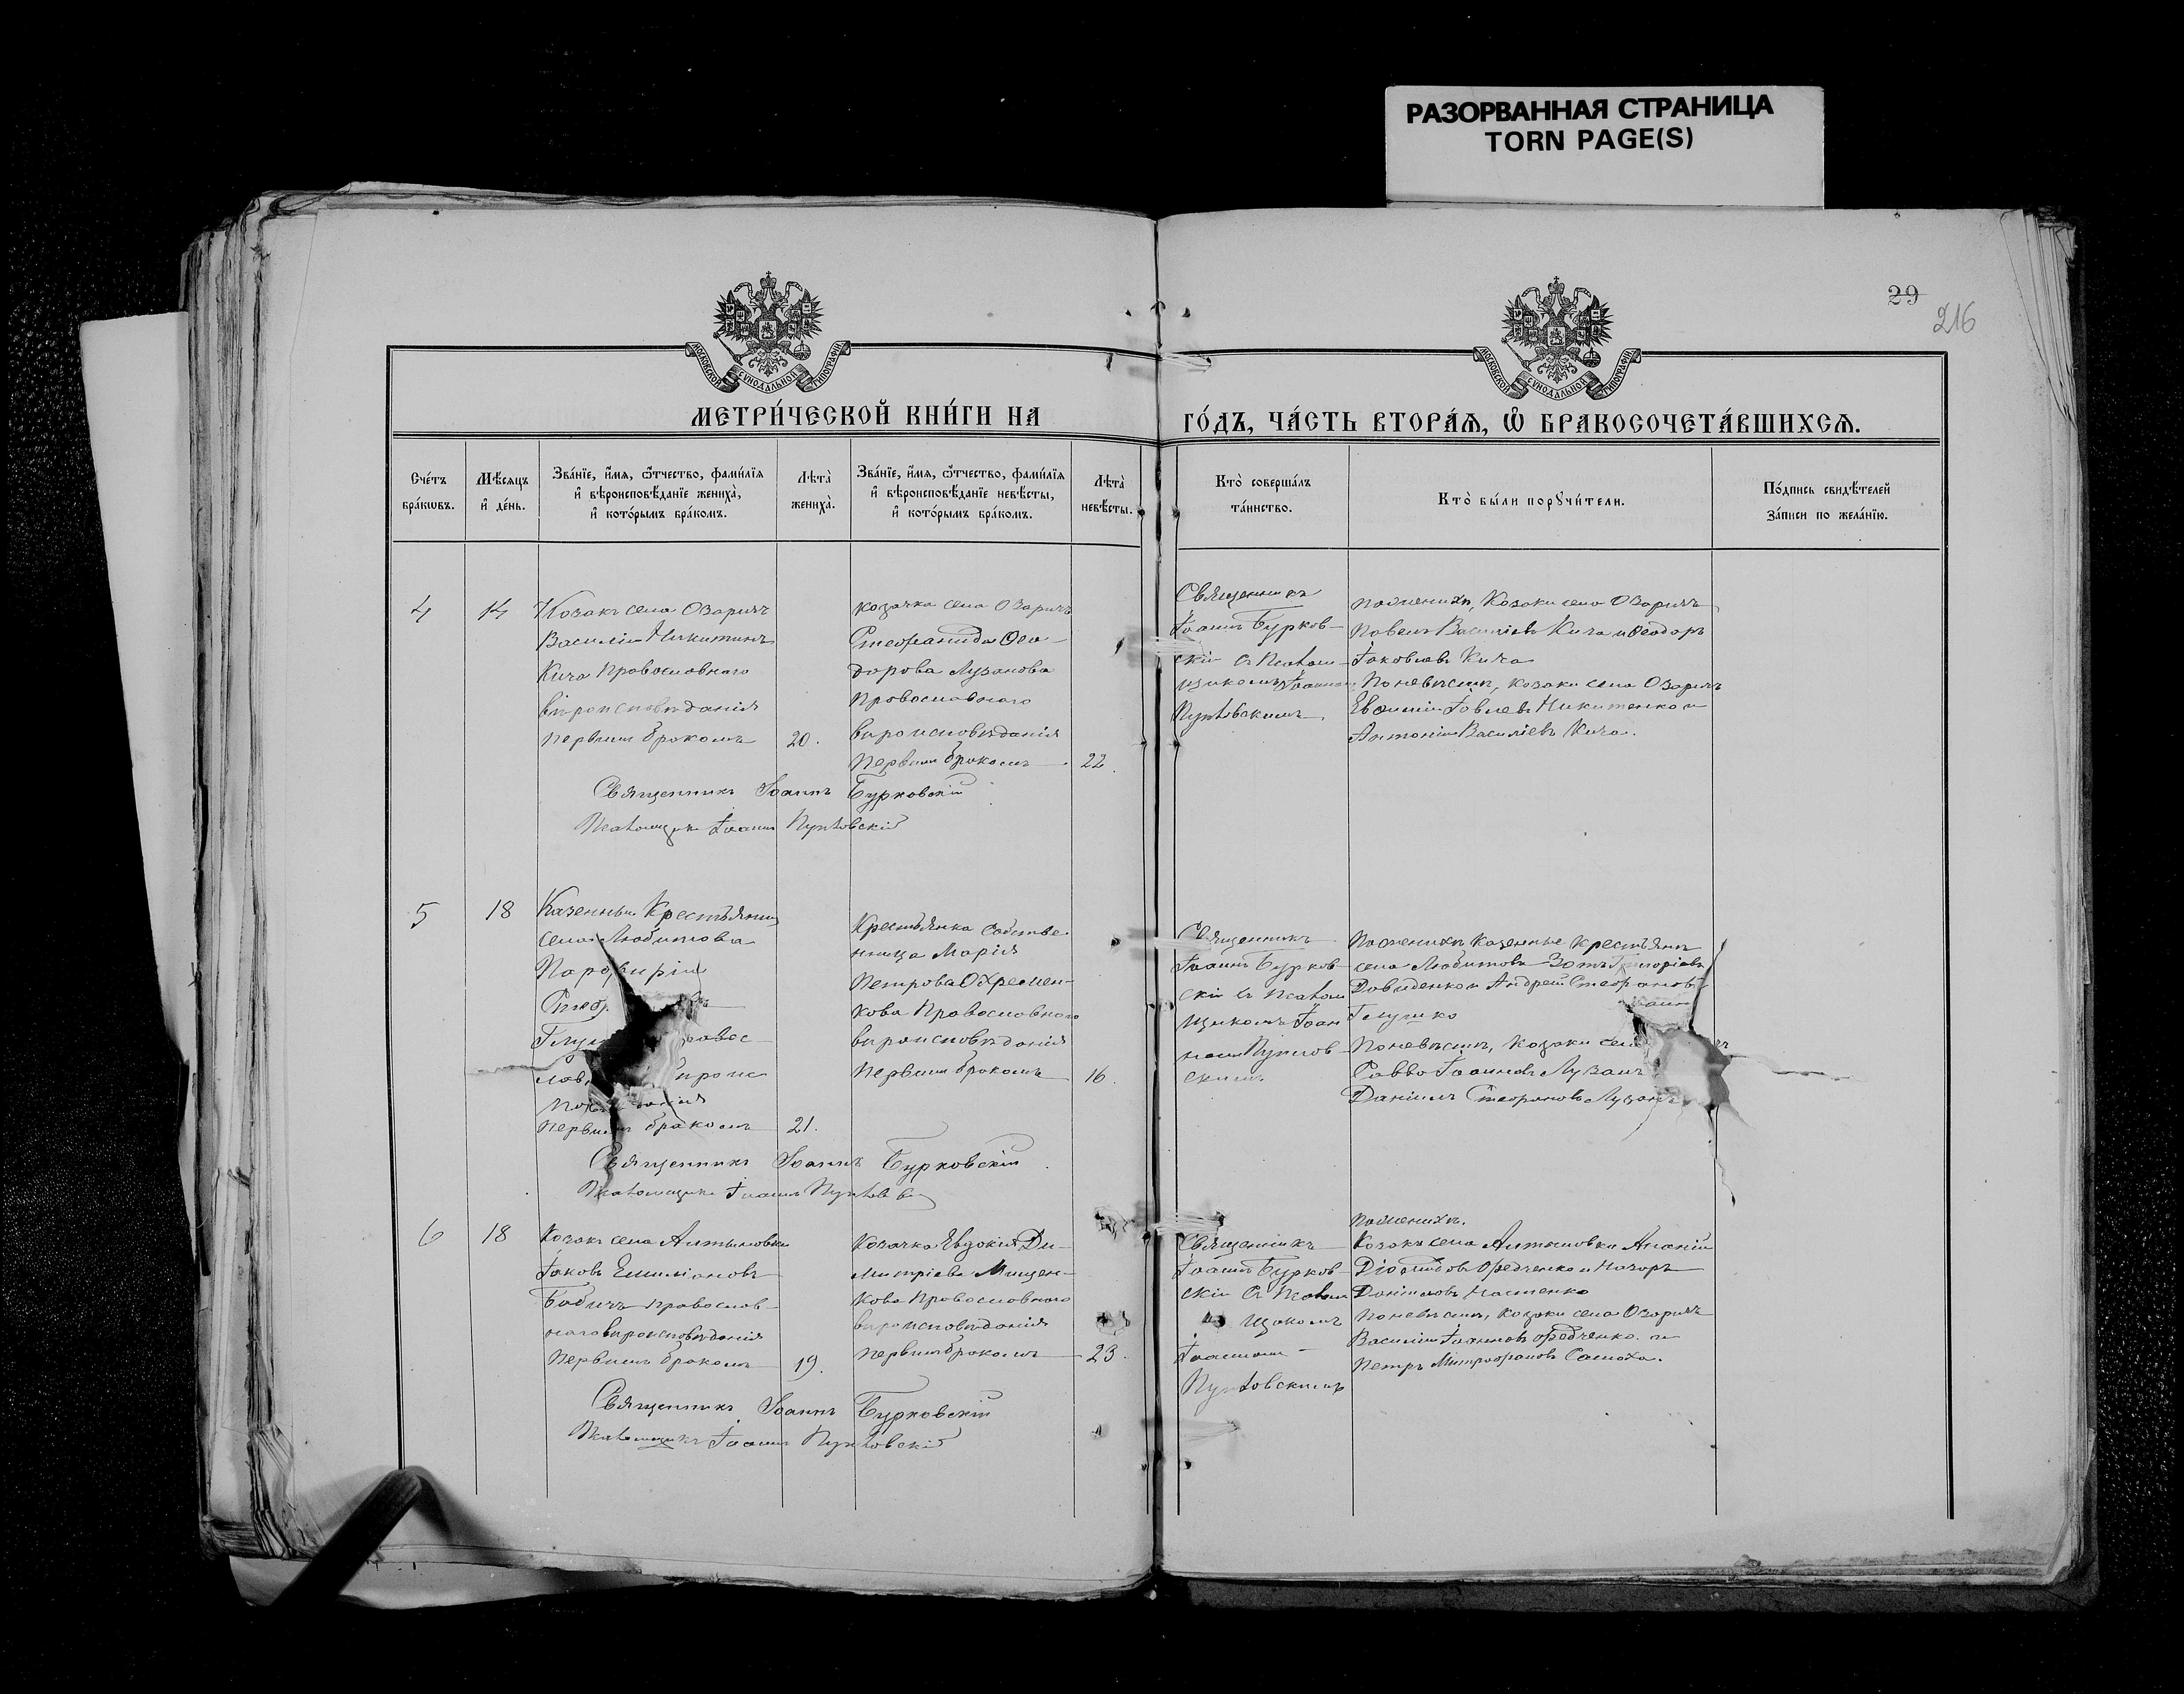 РАЗОРВАННАЯ СТРАНИЦА
TORN PAGE(S)
29
216
МОСКОВСКОЙ СѴНОДАЛЬНОЙ ТИПОГРАФІИ
МОСКОВСКОЙ СѴНОДАЛЬНОЙ ТИПОГРАФІИ
МЕТРИ́ЧЕСКОЙ КНИ́ГИ НА
ГО́ДЪ, ЧА́СТЬ ВТОРА́Ѧ, Ѽ БРАКОСОЧЕТА́ВШИХСѦ.
Сче́тъ
бра́кѡвъ.
Мѣ́сяцъ
и҆ де́нь.
Зва́нїе, и҆́мѧ, ѻ҆́тчество, фами́лїѧ
и҆ вѣроисповѣ́данїе жениха̀,
и҆ кото́рымъ бра́комъ.
Лѣта̀
жениха̀.
Зва́нїе, и҆́мѧ, ѻ҆́тчество, фами́лїѧ
и҆ вѣроисповѣ́данїе невѣ́сты,
и҆ кото́рымъ бра́комъ.
Лѣта̀
невѣ́сты.
Кто̀ соверша́лъ
та́инство.
Кто̀ бы́ли порꙋчи́тели.
По́дпись свидѣ́телей
за́писи по жела́нїю.
4
14
Козакъ села Озаричъ
Василій Никитинъ
Кича Православнаго
вѣроисповѣданія
первымъ бракомъ
20.
козачка села Озаричъ
Стефанида Ѳео-
дорова Лузанова
Православнаго
вѣроисповѣданія
первымъ бракомъ
22.
Священникъ
Іоаннъ Бурков-
скій съ Псалом-
щикомъ Іоанномъ
По женихѣ, Козаки села Озаричъ
Павелъ Василіевъ Кича и Ѳеодоръ
Іаковлевъ Кича
По невѣстѣ, козаки села Озаричъ
Никитенко и
Антоній Василіевъ Кича.
Священникъ Іоаннъ Бурковскій
Псаломщикъ Іоаннъ
5
18
Казенный Крестьянинъ
села Любитова
Порфирій
первымъ бракомъ
21.
Крестьянка собстве-
нница Марія
Петрова Охремен-
кова Православнаго
вѣроисповѣданія
первымъ бракомъ
16.
Священникъ
Іоаннъ Бурков-
скій съ Псалом
щикомъ Іоан
По женихѣ казенные крестьяне
села Любитова Зотъ Григоріевъ
Давиденко и Андрей Стефановъ
Глушко
По невѣстѣ, козаки села
Савва Іоанновъ Лузан
Даніилъ Стефановъ Лузан
Священникъ Іоаннъ Бурковскій
Псаломщикъ Іоаннъ
6
18
Козакъ села Алтыновки
Іаковъ Емиліановъ
Бабичъ православ-
наго вѣроисповѣданія
первымъ бракомъ
19.
Козачка Евдокія Ди-
митріева Мищен-
кова Православнаго
вѣроисповѣданія
первымъ бракомъ
23.
Священникъ
Іоаннъ Бурков-
скій съ Псалом
щикомъ
Іоанномъ
По женихѣ.
Козаки села Алтыновки Ананій
Діомидовъ Федченко и Назаръ
Даніиловъ
По невѣстѣ, козаки села Озаричъ
Василій Іоанновъ Федченко и
Петръ Митрофановъ Самоха.
Священникъ Іоаннъ Бурковскій
Псаломщикъ Іоаннъ